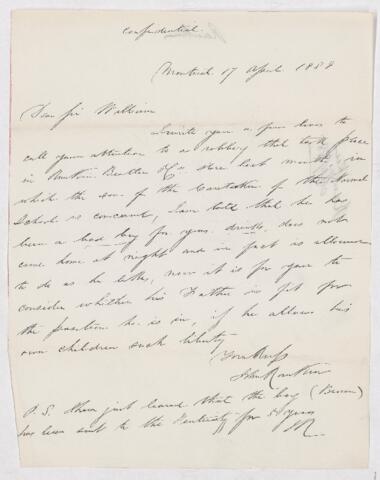 Confidential
Montreal 17 April 1888
Dear Sir William
I write you a few lines to
call your attention to a robbery that took place
in Beattie & Co store last month in
which the son of the Caretaker of the Normal
School is concerned, I am told that he has
been a bad boy for years drinks, does not
come home at night and in fact is allowed
to do as he likes, now it is for you to
consider whether his Father is fit for
the position he is in, if he allows his
own children such liberty
Yours
John
P.S. I have just learned that the boy
has been sent to the Penitentiary for 5 years
JR